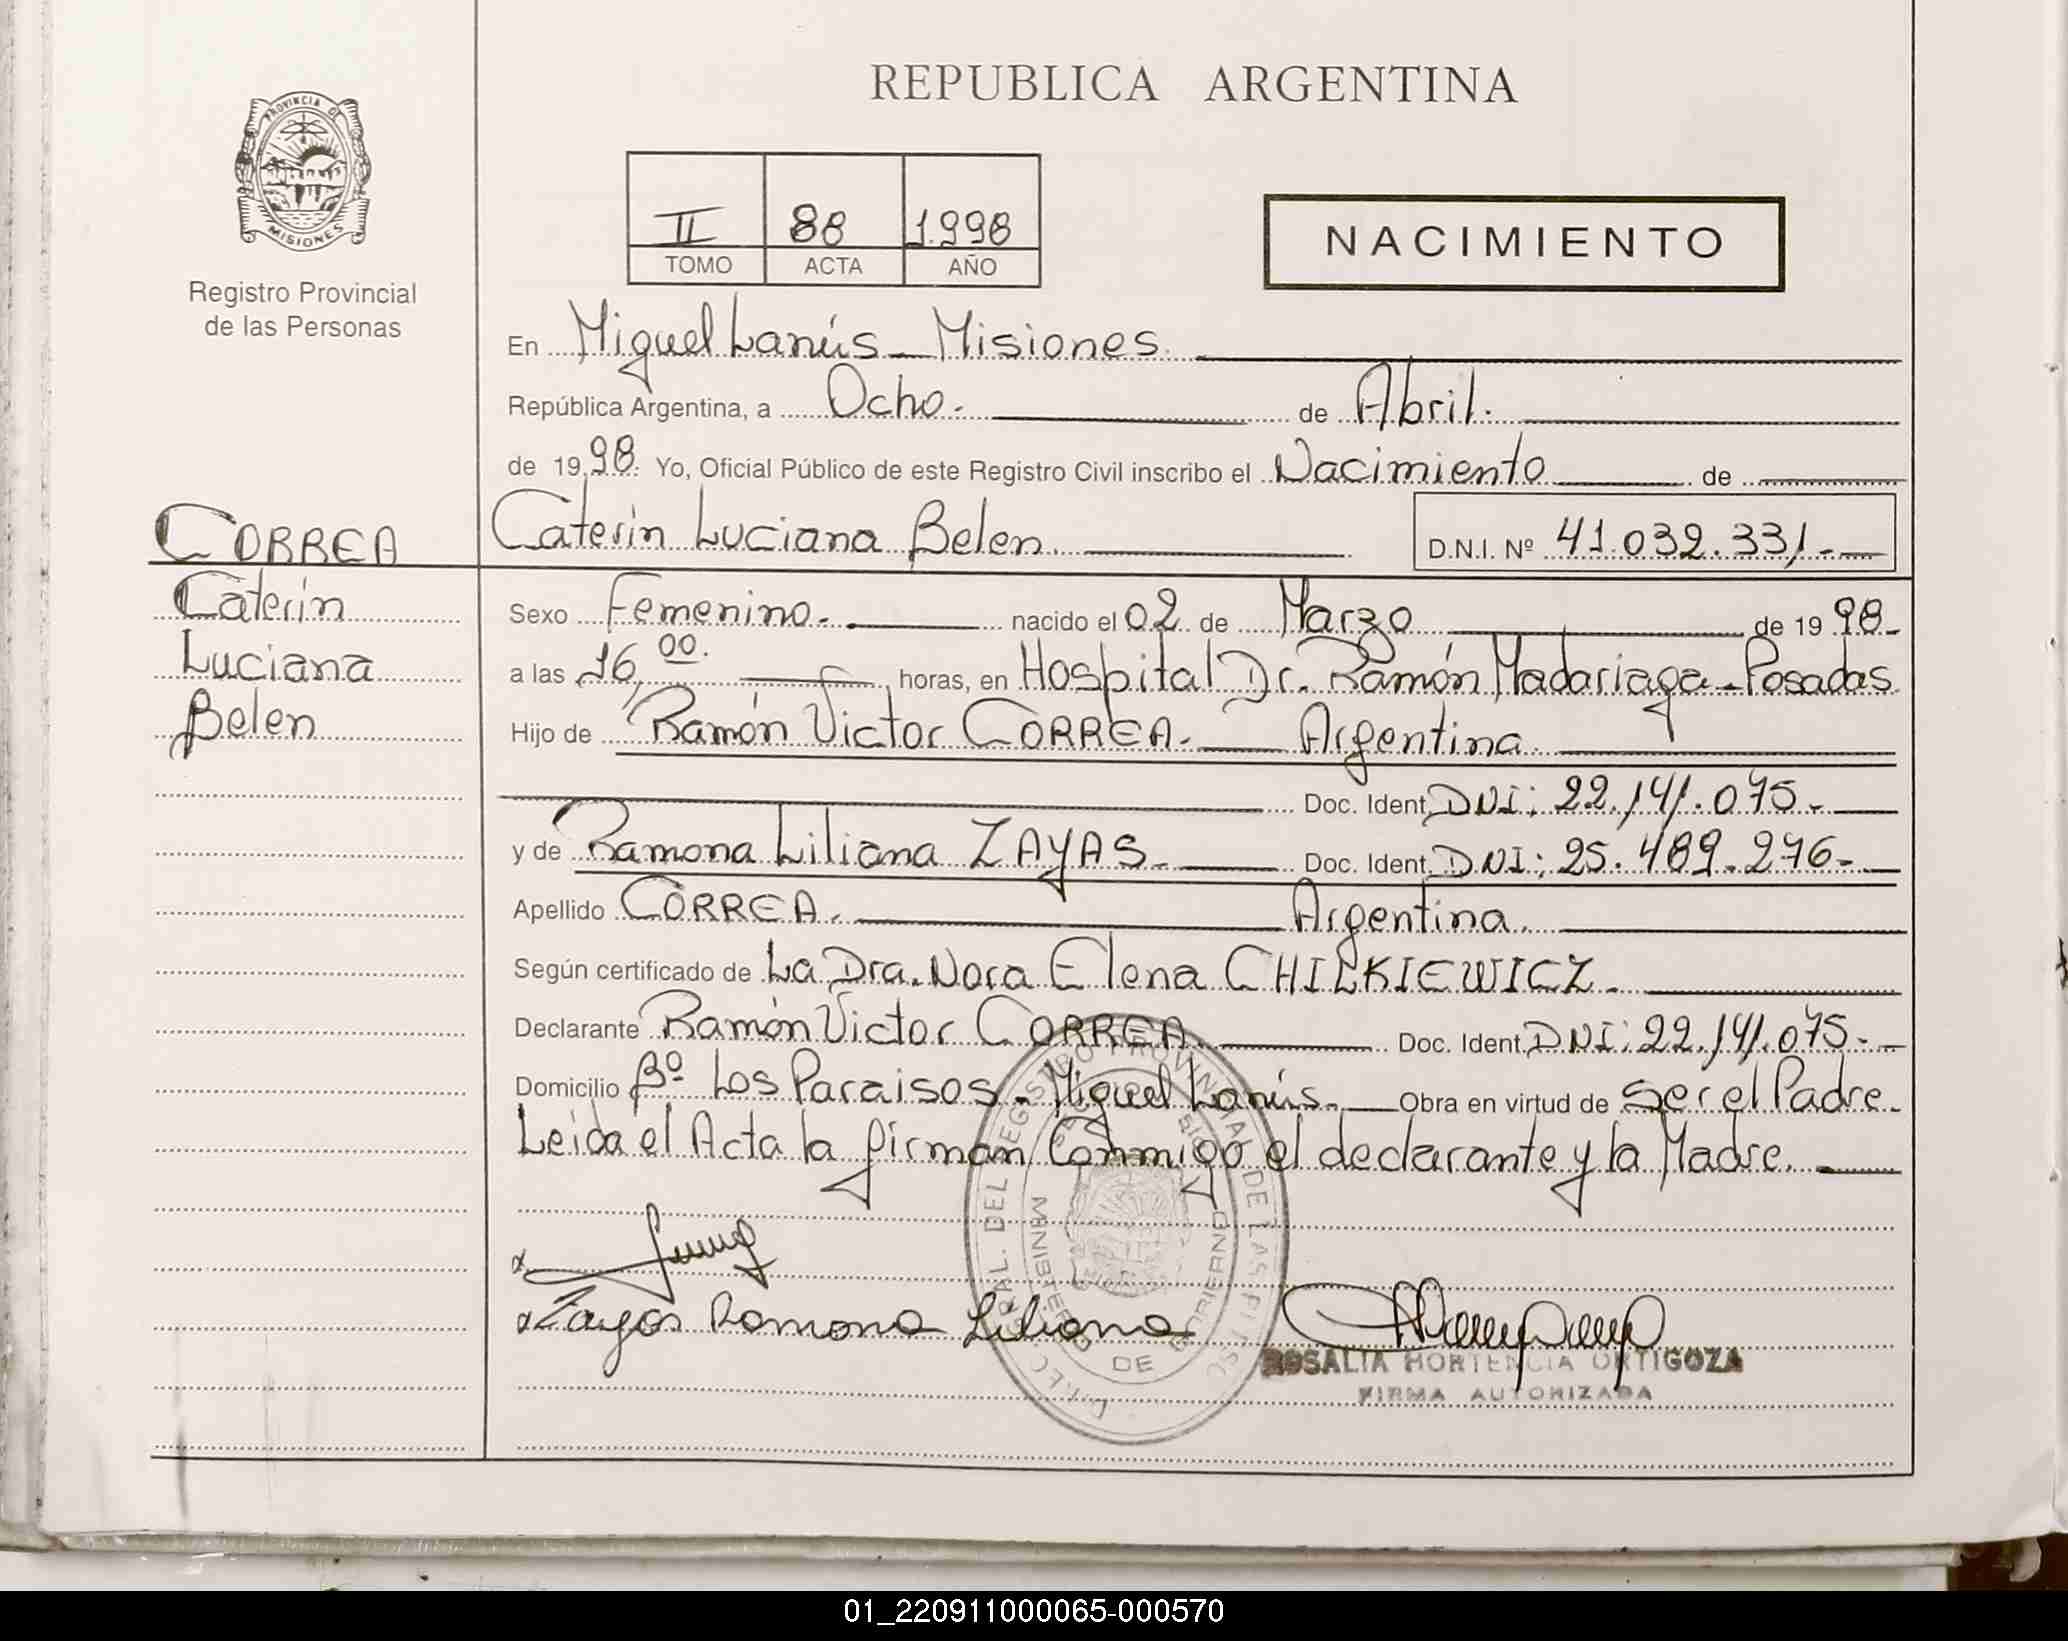 REPUBLICA ARGENTINA
PROVINCIA DE
MISIONES
Registro Provincial
de las Personas
II 88 1.998
TOMO ACTA AÑO
NACIMIENTO
En Miguel Lanús - Misiones.
República Argentina, a Ocho. de Abril.
de 19 98. Yo, Oficial Público de este Registro Civil inscribo el Nacimiento de
CORREA
Caterin Luciana Belen. D.N.I. Nº 41.032.331.-
Caterin
Luciana
Belen
Sexo Femenino. nacido el 02 de Marzo de 19 98-
a las 16,00. horas, en Hospital Dr. Ramón Madariaga - Posadas
Hijo de Ramón Victor CORREA. Argentina.
Doc. Ident. DNI: 22.141.075.-
y de Ramona Liliana ZAYAS. Doc. Ident. DNI: 25.489.276-
Apellido CORREA. Argentina.
Según certificado de La Dra. Nora Elena CHILKIEWICZ.
Declarante Ramón Victor CORREA. Doc. Ident. DNI: 22.141.075.-
Domicilio Bº Los Paraisos - Miguel Lanús.- Obra en virtud de Ser el Padre.
Leida el Acta la firman Conmigo el declarante y la Madre.
x
x Zayas Ramona Liliana
ROSALIA HORTENCIA ORTIGOZA
FIRMA AUTORIZADA
MINISTERIO DE GOBIERNO
01_220911000065-000570